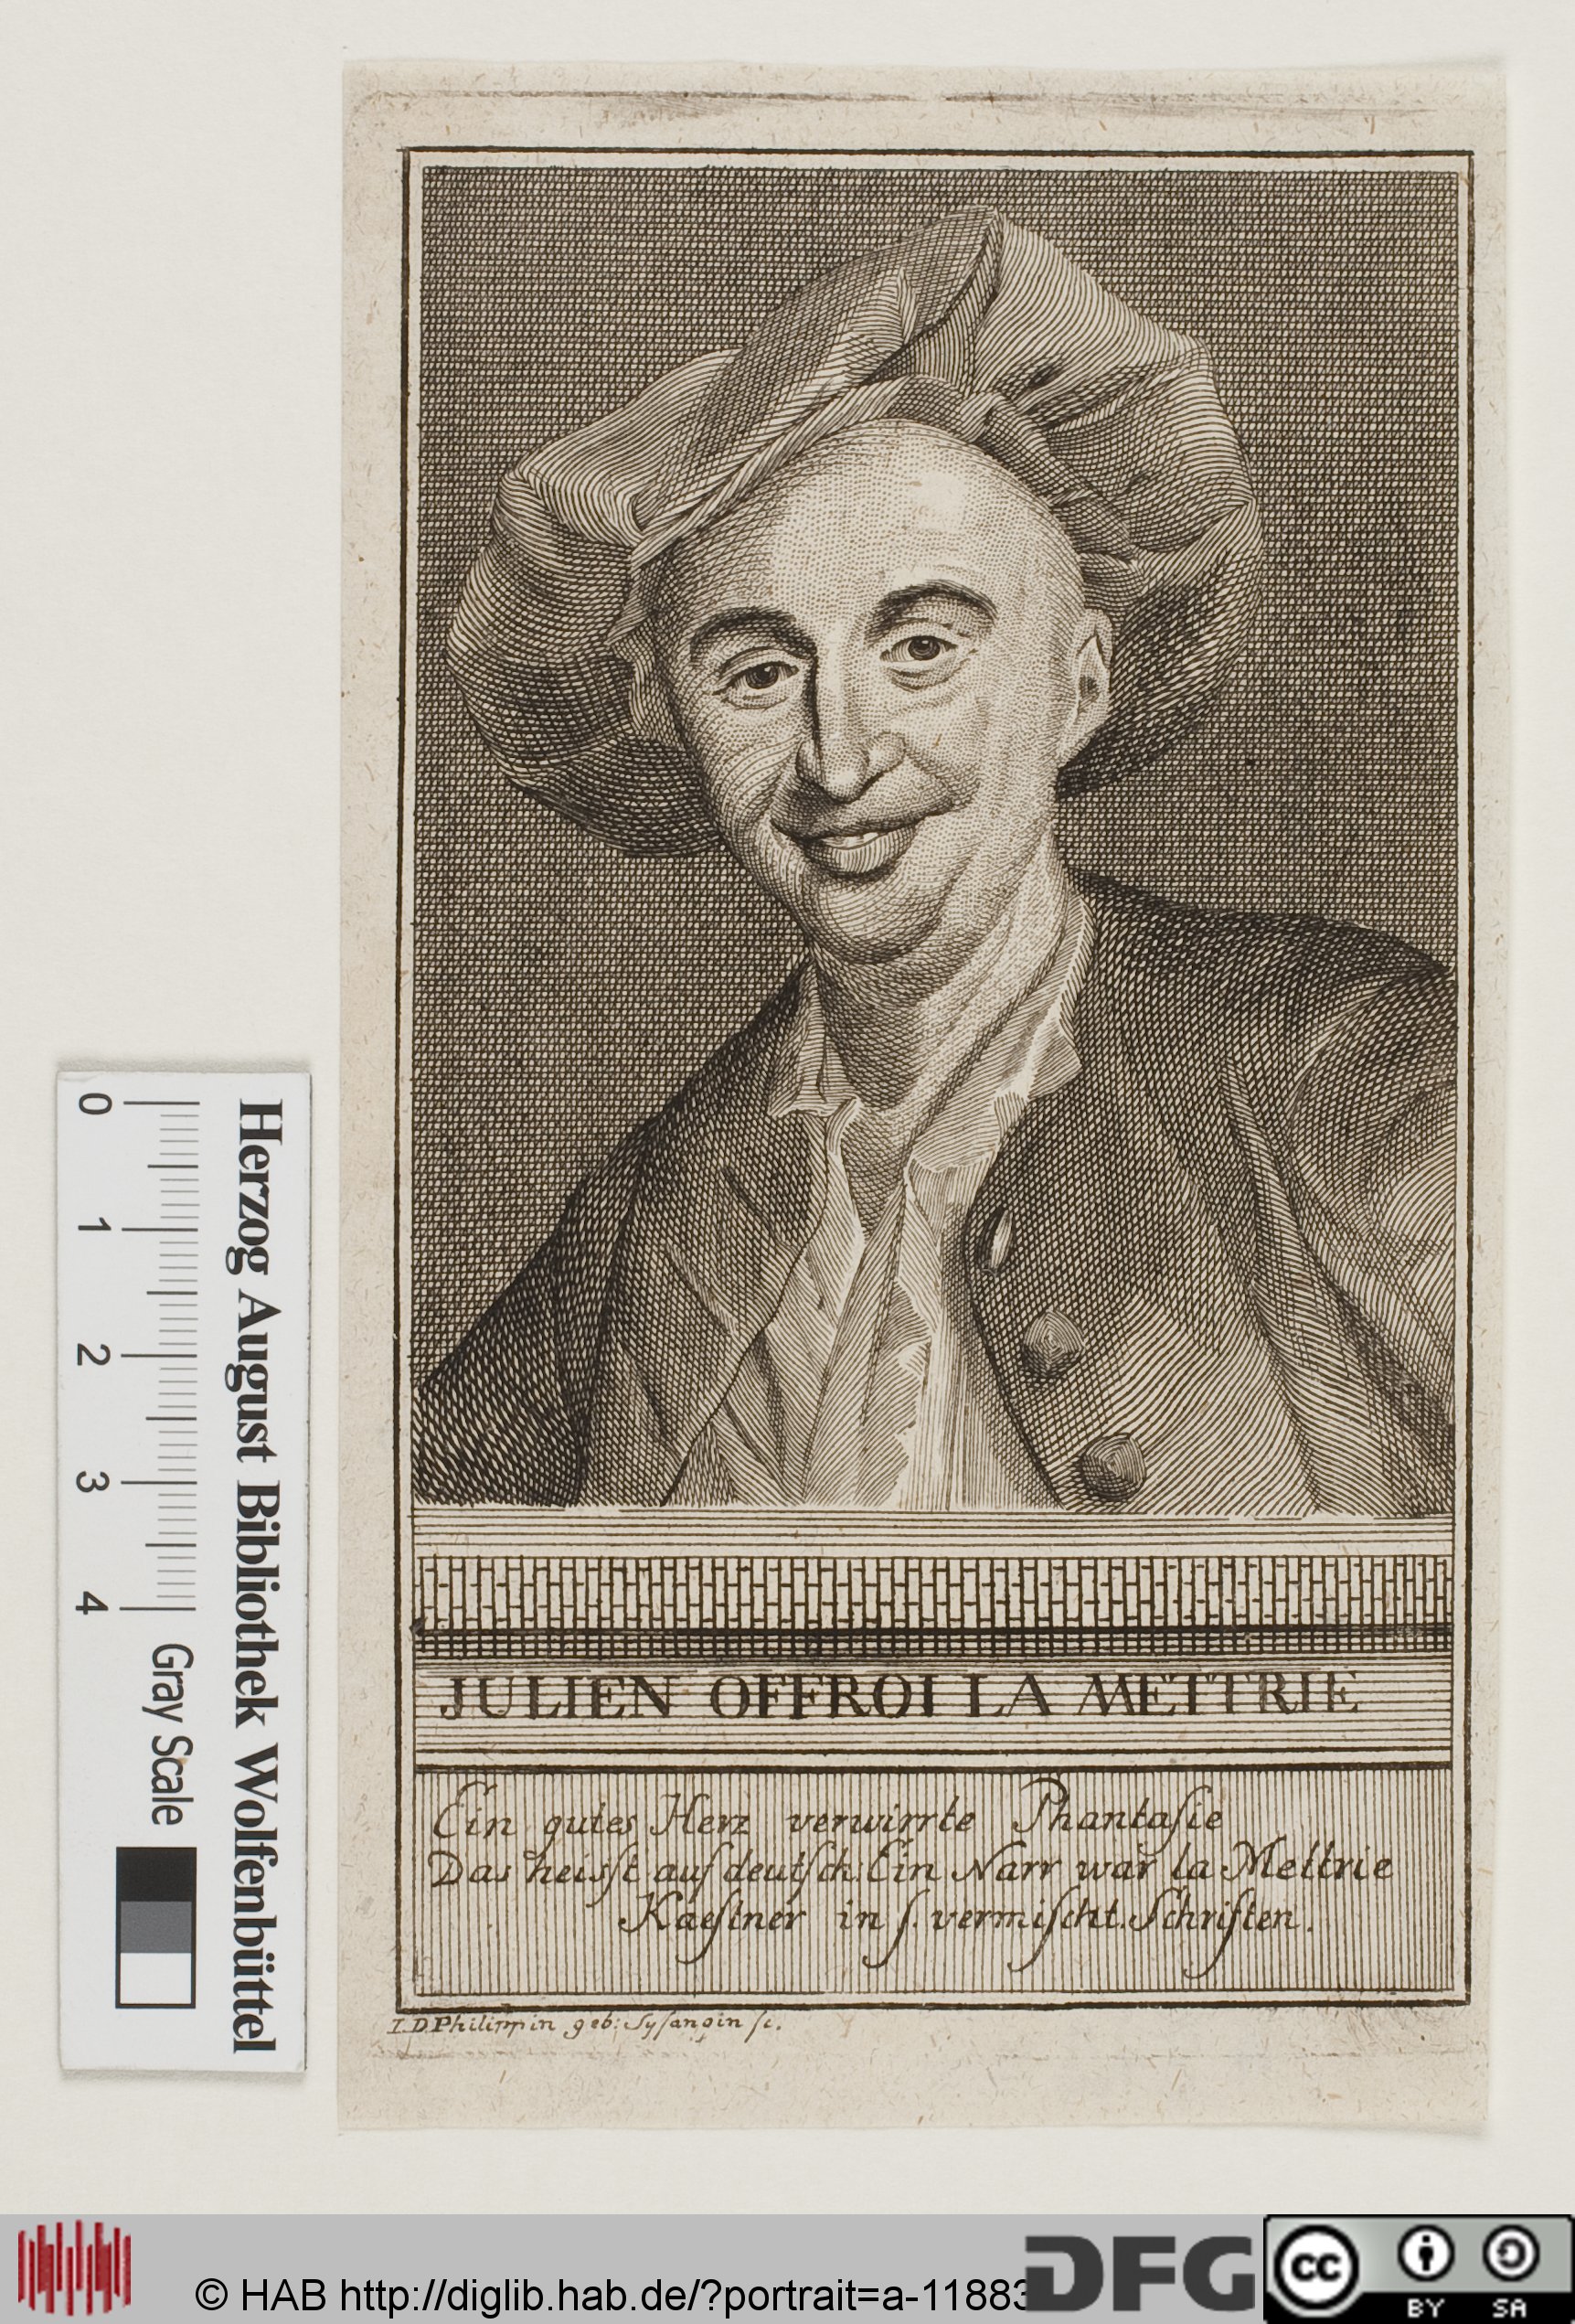 JULIEN OFFROI LA METTRIE
Ein gutes Herz verwirrte Phantaſie
Das heisſt auf deutſch: Ein Narr war la Mettrie
Kaeſtner in ſ. vermiſcht. Schriften.
I. D. Philippin geb: Syſangin ſc.
Herzog August Bibliothek Wolfenbüttel
0 1 2 3 4 Gray Scale
© HAB http://diglib.hab.de/?portrait=a-11883
DFG
cc
BY SA